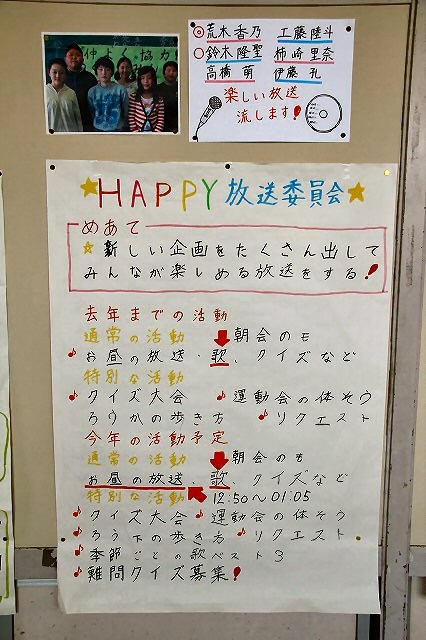 仲よく協力
◎荒木香乃 工藤陸斗
○鈴木隆聖 柿崎里奈
高橋萌 伊藤礼
楽しい放送
流します!
★HAPPY放送委員会★
めあて
☆新しい企画をたくさん出して
みんなが楽しめる放送をする!
去年までの活動
通常の活動 朝会のモ
♪お昼の放送・歌、クイズなど
特別な活動
♪クイズ大会 ♪運動会の体そう
ろうかの歩き方 ♪リクエスト
今年の活動予定
通常の活動 朝会のも
お昼の放送、歌、クイズなど
特別な活動 12:50〜01:05
♪クイズ大会 ♪運動会の体そう
♪ろう下の歩き方 ♪リクエスト
♪季節ごとの歌ベスト3
♪難問クイズ募集!